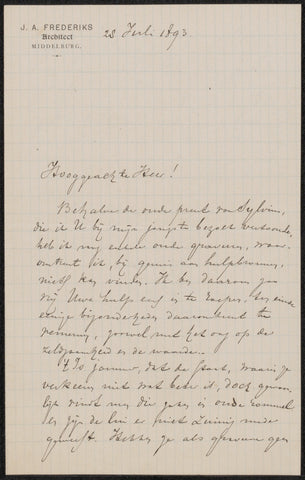 J. A. FREDERIKS
Architect
MIDDELBURG.
28 Juli 1893.
Hooggeachte Heer!
Behalve de oude prent van Sylvius,
die ik U bij mijn jongste bezoek vertoonde,
heb ik nog enkele oude gravures, waar-
omtrent ik, bij gemis aan hulpbronnen,
niets kan vinden. Ik ben daarom zoo
vrij Uwe hulp in te roepen, ten einde
eenige bijzonderheden daaromtrent te
vernemen, zoowel met het oog op de
zeldzaamheid en de waarde.
't Is jammer, dat de staat, waarin ze
verkeeren niet wat beter is, doch gewoon-
lijk vindt men die zaken in oude rommel
en zijn de lui er niet zuinig mede
geweest. Hebben ze als gravure geen